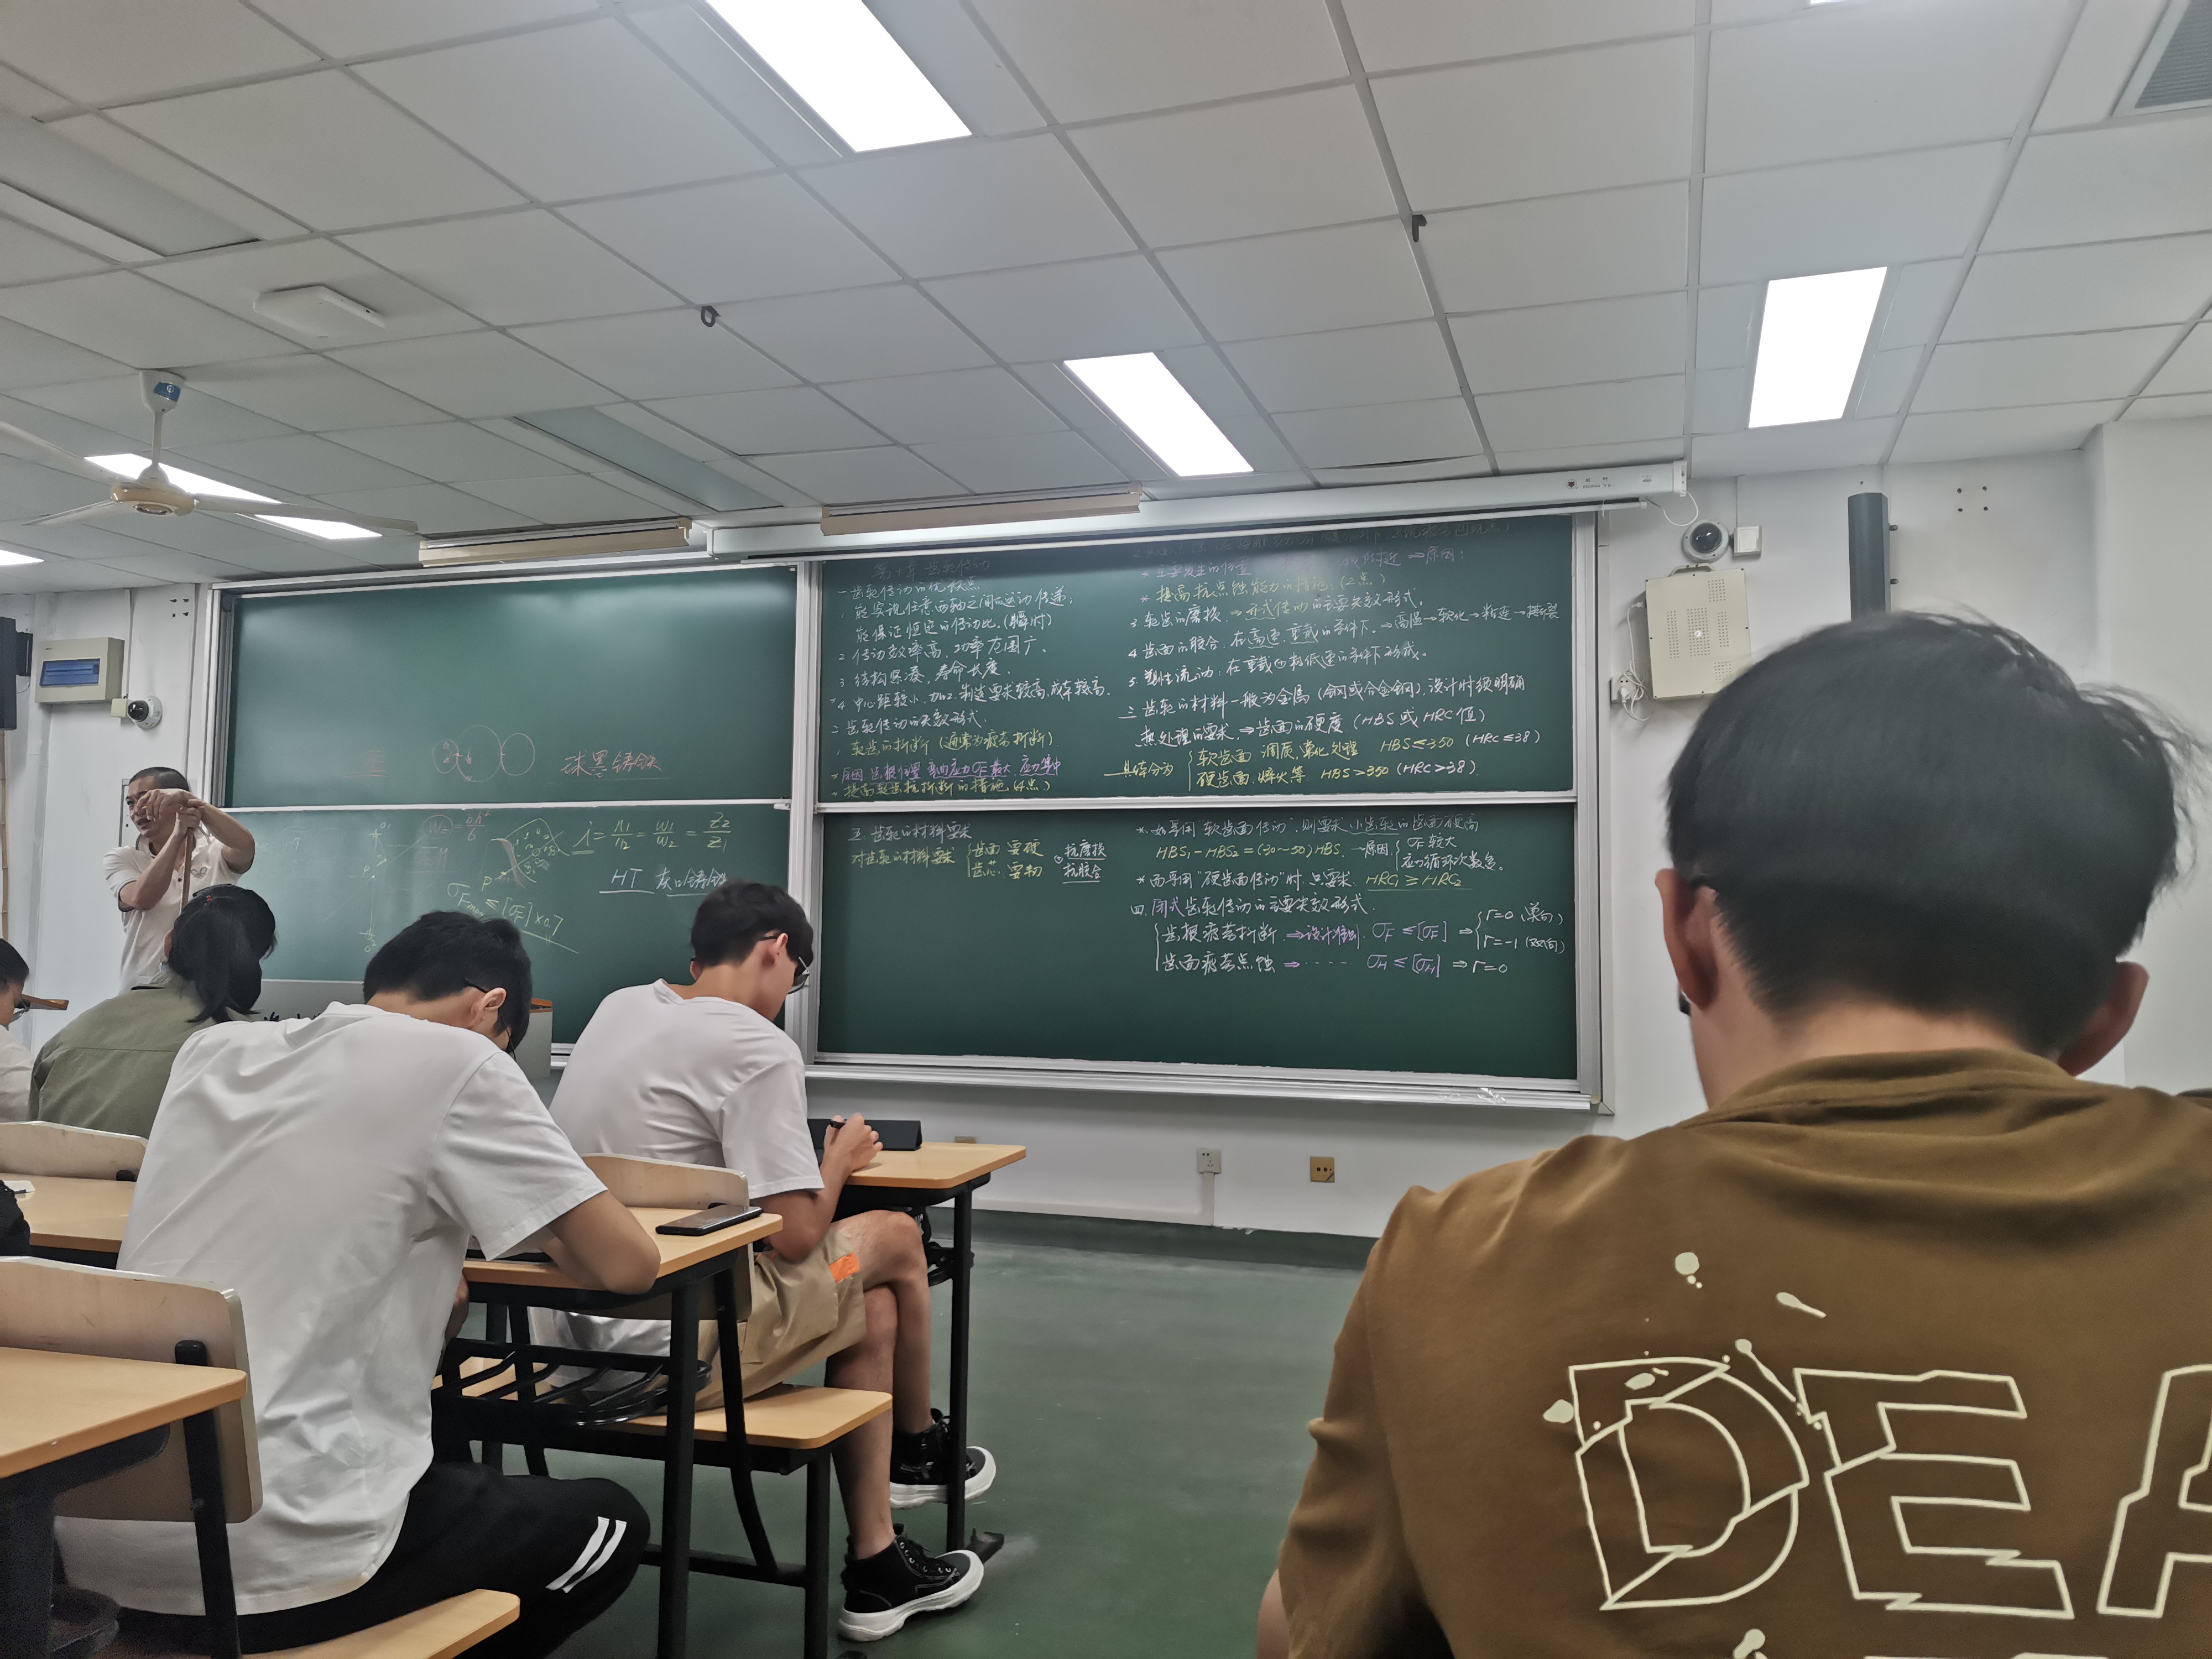 球墨铸铁
i = n1/n2 = w1/w2 = Z2/Z1
HT 灰口铸铁
P
σFmax ≤ [σF] × 0.7
W2 = bh²/6
第十章 齿轮传动
一 齿轮传动的优缺点
1 能实现任意两轴之间的运动传递；
能保证恒定的传动比.(瞬时)
2 传动效率高, 功率范围广.
3 结构紧凑, 寿命长度.
*4 中心距较小, 加工.制造要求较高,成本较高.
二 齿轮传动的失效形式.
1. 轮齿的折断 (通常为疲劳折断)
*原因 齿根位置 弯曲应力σF最大, 应力集中
*提高轮齿抗折断的措施.(4点)
*主要发生的位置 附近 ⇒原因:
* 提高抗点蚀能力的措施. (2点)
3 轮齿的磨损. ⇒ 开式传动的主要失效形式.
4 齿面的胶合. 在高速.重载的条件下. ⇒高温→软化→粘连→撕裂
5. 塑性流动: 在重载 低速的条件下形成.
三 齿轮的材料一般为金属 (钢或合金钢). 设计时须明确
热处理的要求. ⇒ 齿面的硬度 (HBS 或 HRC 值)
具体分为 { 软齿面 调质,常化处理 HBS≤350 (HRC≤38)
硬齿面. 焠火等 HBS>350 (HRC>38).
五. 齿轮的材料要求
对齿轮的材料要求 { 齿面 要硬 抗磨损
齿芯. 要韧 抗胶合
* 如采用“软齿面传动”, 则要求 小齿轮的齿面硬高
HBS1-HBS2=(30~50)HBS. →原因 { σF 较大
应力循环次数多.
* 而采用“硬齿面传动”时. 只要求. HRC1 ≥ HRC2
四. 闭式齿轮传动的主要失效形式.
{ 齿根疲劳折断 ⇒ 设计准则. σF ≤ [σF] ⇒ { r=0 (单向)
r=-1 (双向)
齿面疲劳点蚀 ⇒ ···· σH ≤ [σH] ⇒ r=0
DEA